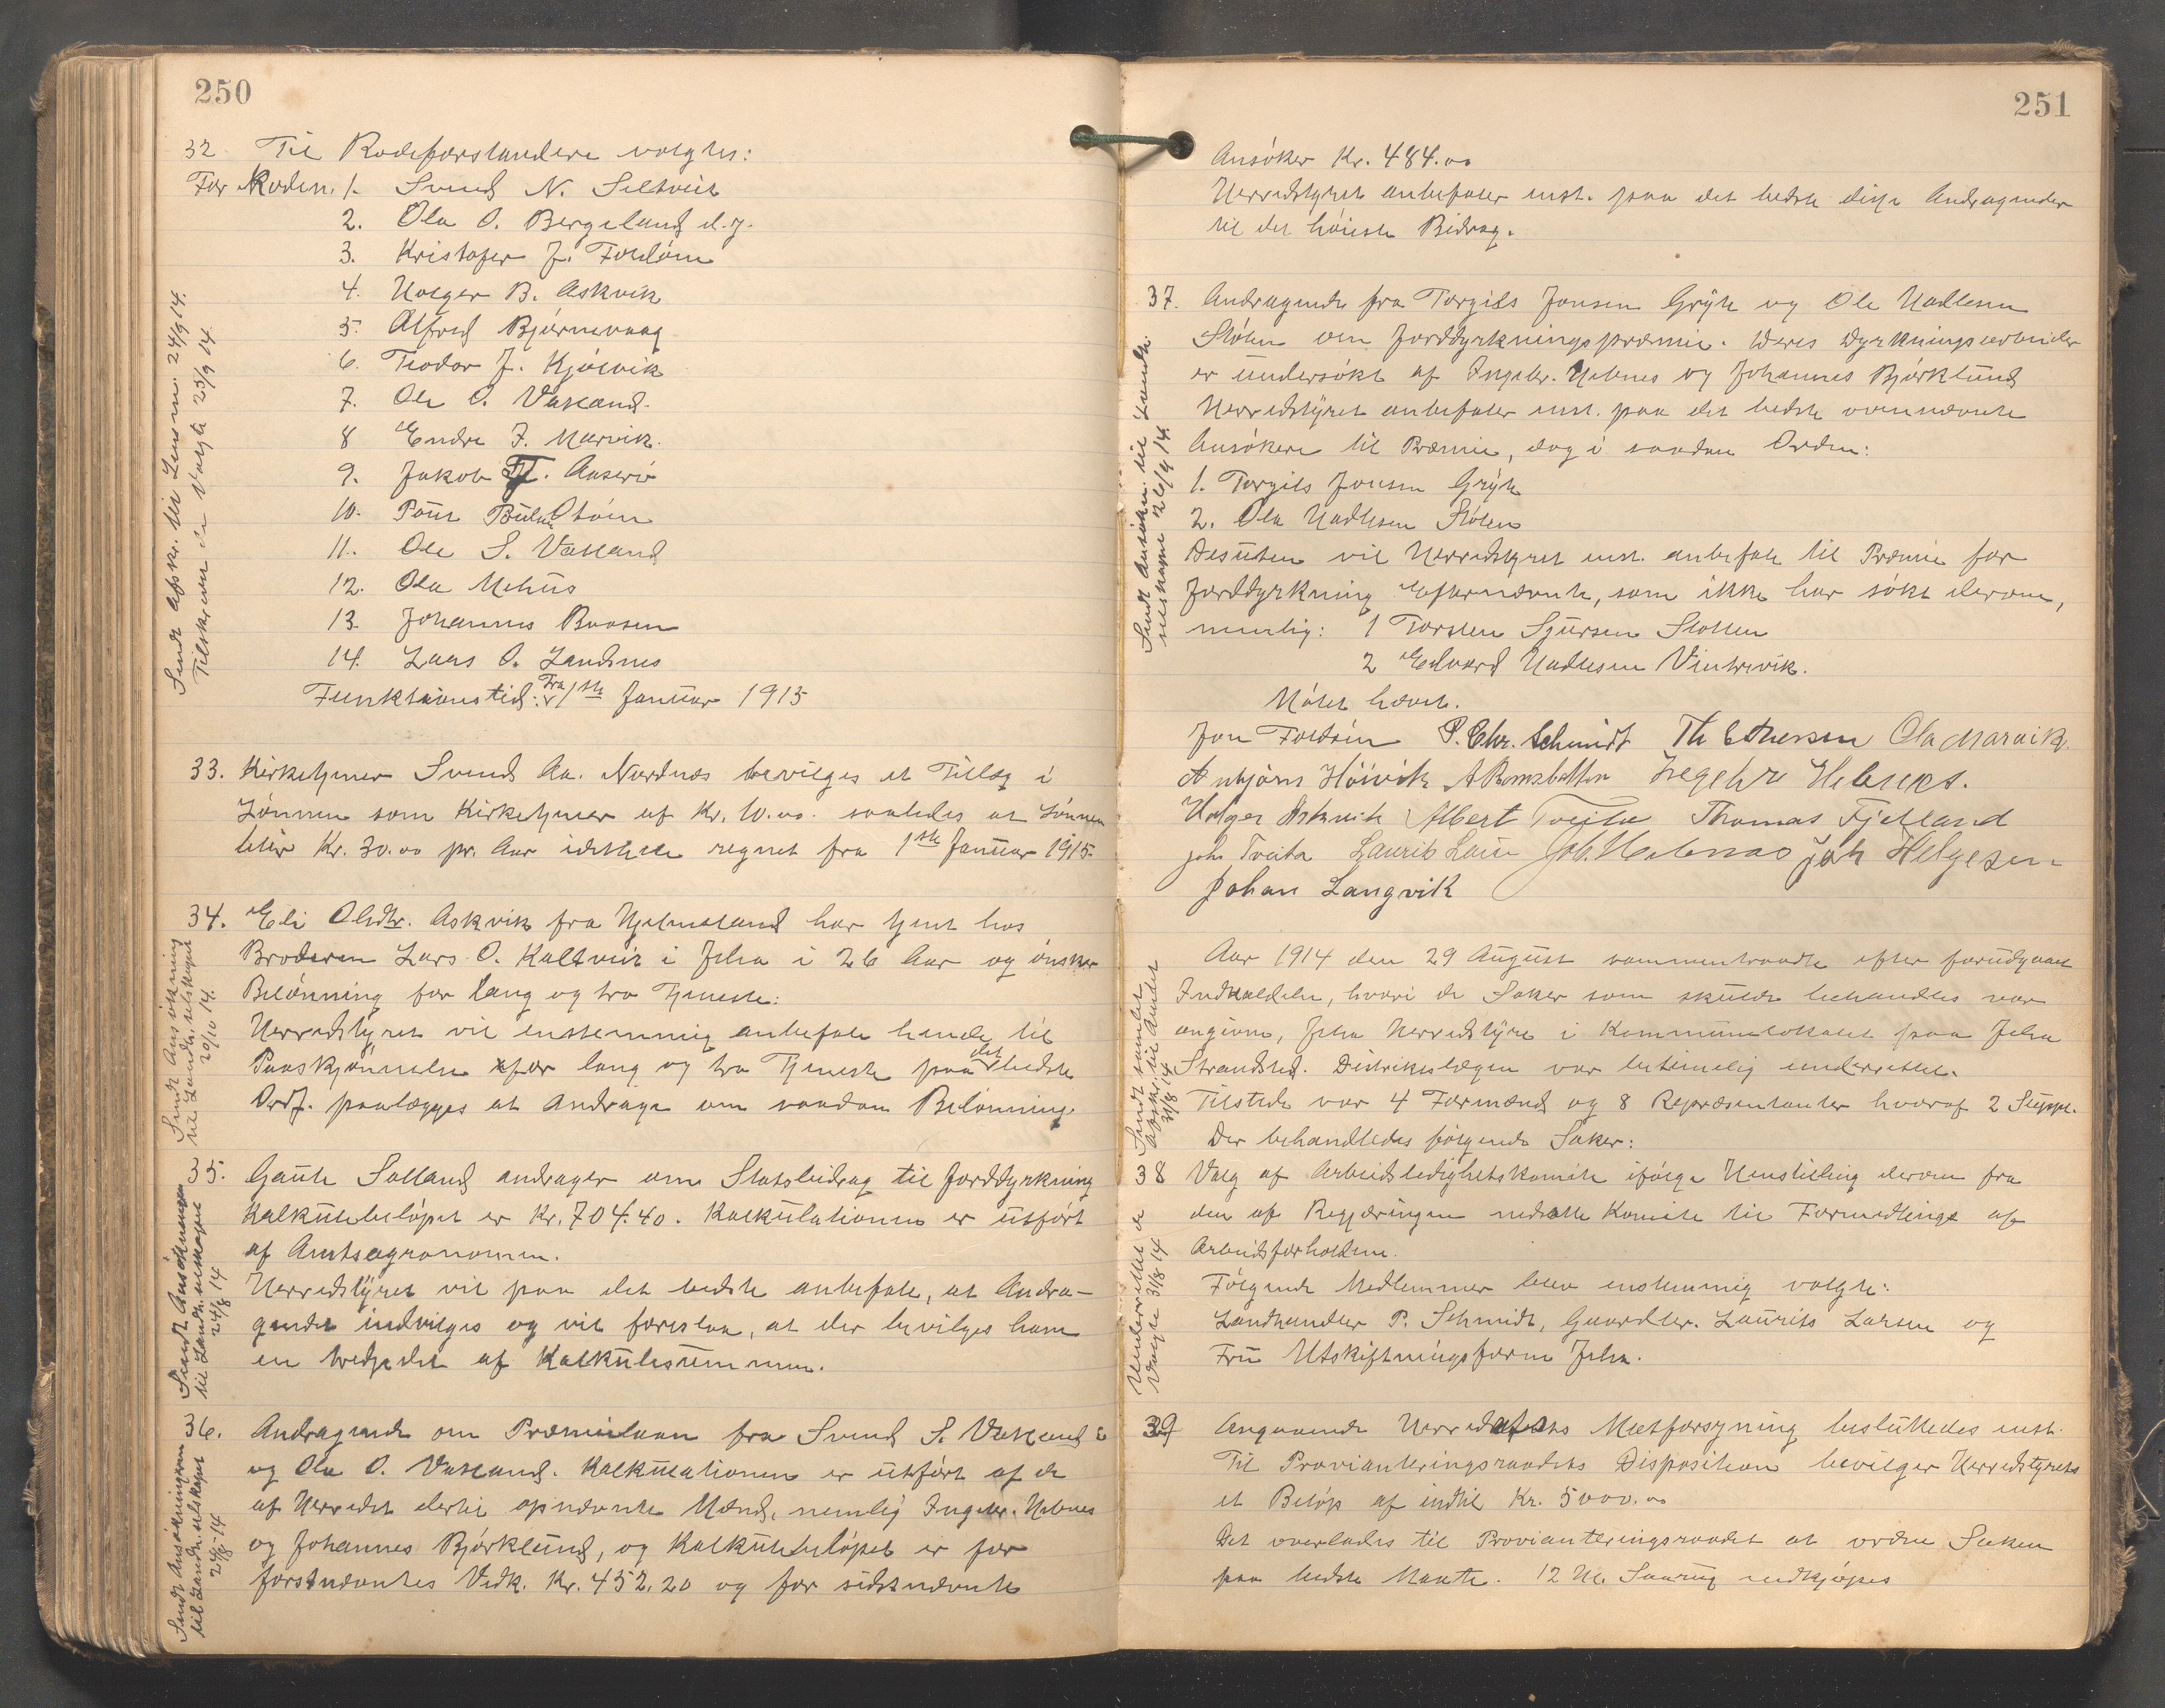 250
32 Til Rodeforstandere valgtes:
For Roden. 1. Svend N. Seltveit
2. Ola O. Bergeland d.y.
3. Kristofer J. Foldöen
4. Holger B. Askvik
5. Alfred Bjørnevaag
6. Teodor J. Kjølvik
7. Ole O. Vadland.
8 Endre J. Marvik.
9. Jakob T.
10. Poul
11. Ole S. Vadland
12. Ola Mehus
13. Johannes Boosen
14. Lars O. Landsnes
Funktionstid: Fra 1ste Januar 1915
Sendt Afskr. til Lensm. 24/9 14.
Tilskreven de Valgte 25/9 14.
33. Kirketjener Svend Aa. Nordnæs bevilges et Tillæg i
Lönnen som Kirketjener af Kr. 10.00. saaledes at Lönnen
blir Kr. 30.00 pr. Aar regnet fra 1ste Januar 1915.
34. Eli Olsdtr. Askvik fra Hjelmeland har tjent hos
Broderen Lars O. Kaltveit i Jelsa i 26 Aar og önsker
Belönning for lang og tro Tjeneste.
Herredstyret vil enstemmig anbefale hende til
Paaskjönnelse for lang og tro Tjeneste paa det bedste
Ordf. paalægges at andrage om saadan Belönning.
Sendt Ansökning
til Landh.selskapet
20/10 14.
35. Gaute Sølland andrager om Statsbidrag til Jorddyrkning
Kalkulebelöpet er Kr. 704.40. Kalkulationen er utfört
af Amtsagronomen.
Herredstyret vil paa det bedste anbefale, at Andra-
gendet indvilges og vil foreslaa, at der bevilges ham
en tredjedel af Kalkulesummen.
Sendt Ansökningen
til Landh.selskapet
24/8 14
36. Andragende om Præmielaan fra Svend S. Vadland
og Ola O. Vadland. Kalkulationen er utfört af de
af Herredet dertil opnævnte Mænd, nemlig Ingebr. Hebnes
og Johannes Bjørklund, og Kalkulebelöpet er for
förstnævntes Vedk. Kr. 452.20 og for sidstnævnte
Sendt Ansökningerne
til Landh.selskapet
24/8 14
251
Ansöker Kr. 484.00
Herredstyret anbefaler enst. paa det bedste disse Andragender
til det höieste Bidrag.
37. Andragende fra Torgils Jonsen Gryte og Ole Hadlesen
Stölen om Jorddyrkningspræmie. Deres Dyrkningsarbeider
er undersökt af Ingebr. Hebnes og Johannes Björklund
Herredstyret anbefaler enst. paa det bedste ovennævnte
Ansökere til Præmie, dog i saadan Orden:
1. Torgils Jonsen Gryte
2. Ola Hadlesen Stölen
Desuten vil Herredstyret enst. anbefale til Præmie for
Jorddyrkning Efternævnte, som ikke har sökt derom,
nemlig: 1 Torsten Sjursen
2 Edvard Hadlesen Vintrvik.
Mötet hævet.
Sendt Ansökn. til Landh.
selskapet 26/9 14.
Jon Foldöen P. Chr. Schmidt Ola Marvik.
Anbjørn Höivik A Ramsbotten Ingebr. Hebnes.
Holger Askvik Albert Tveita Thomas Fjelland
Joh. Tveita Laurits Joh. Hebnæs Joh Helgesen
Johan Langvik
Aar 1914 den 29 August sammentraadte efter forutgaaet
Indkaldelse, hvori de Saker som skulde behandles var
angivne, Jelsa Herredstyre i Kommunelokalet paa Jelsa
Strandsted. Distriktslægen var betimelig underrettet.
Tilstede var 4 Formænd og 8 Repræsentanter hvoraf 2 Suppl.
Der behandledes fölgende Saker:
Sendt samlet
Afskr. til Amtet
31/8 14
38 Valg af Arbeidsledighetskomite ifölge Henstilling derom fra
den af Regjæringen nedsatte Komite til Formedling af
Arbeidsforholdene.
Fölgende Medlemmer blev enstemmig valgte:
Landhandler P. Schmidt, Gaardbr. Laurits Larsen og
Fru Utskiftningsform Jelsa.
Underrettet de
Valgte 31/8 14
39 Angaaende Herredets Matforsyning besluttedes enst.
Til Provianteringsraadets Disposition bevilger Herredstyret
et Beløp af indtil Kr. 5000.00
Det overlades til Provianteringsraadet at ordne Saken
paa bedste Maate. 12 Hl. indkjöpes